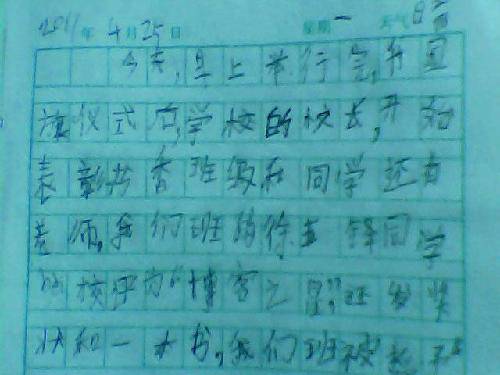 2011年4月25日 星期一 天气
今天,早上举行完升国
旗仪式后,学校的校长,开始
表彰优秀班级和同学还有
老师,我们班的徐 锋同学
校评为“博客之星”还发奖
状和一本书,我们班被